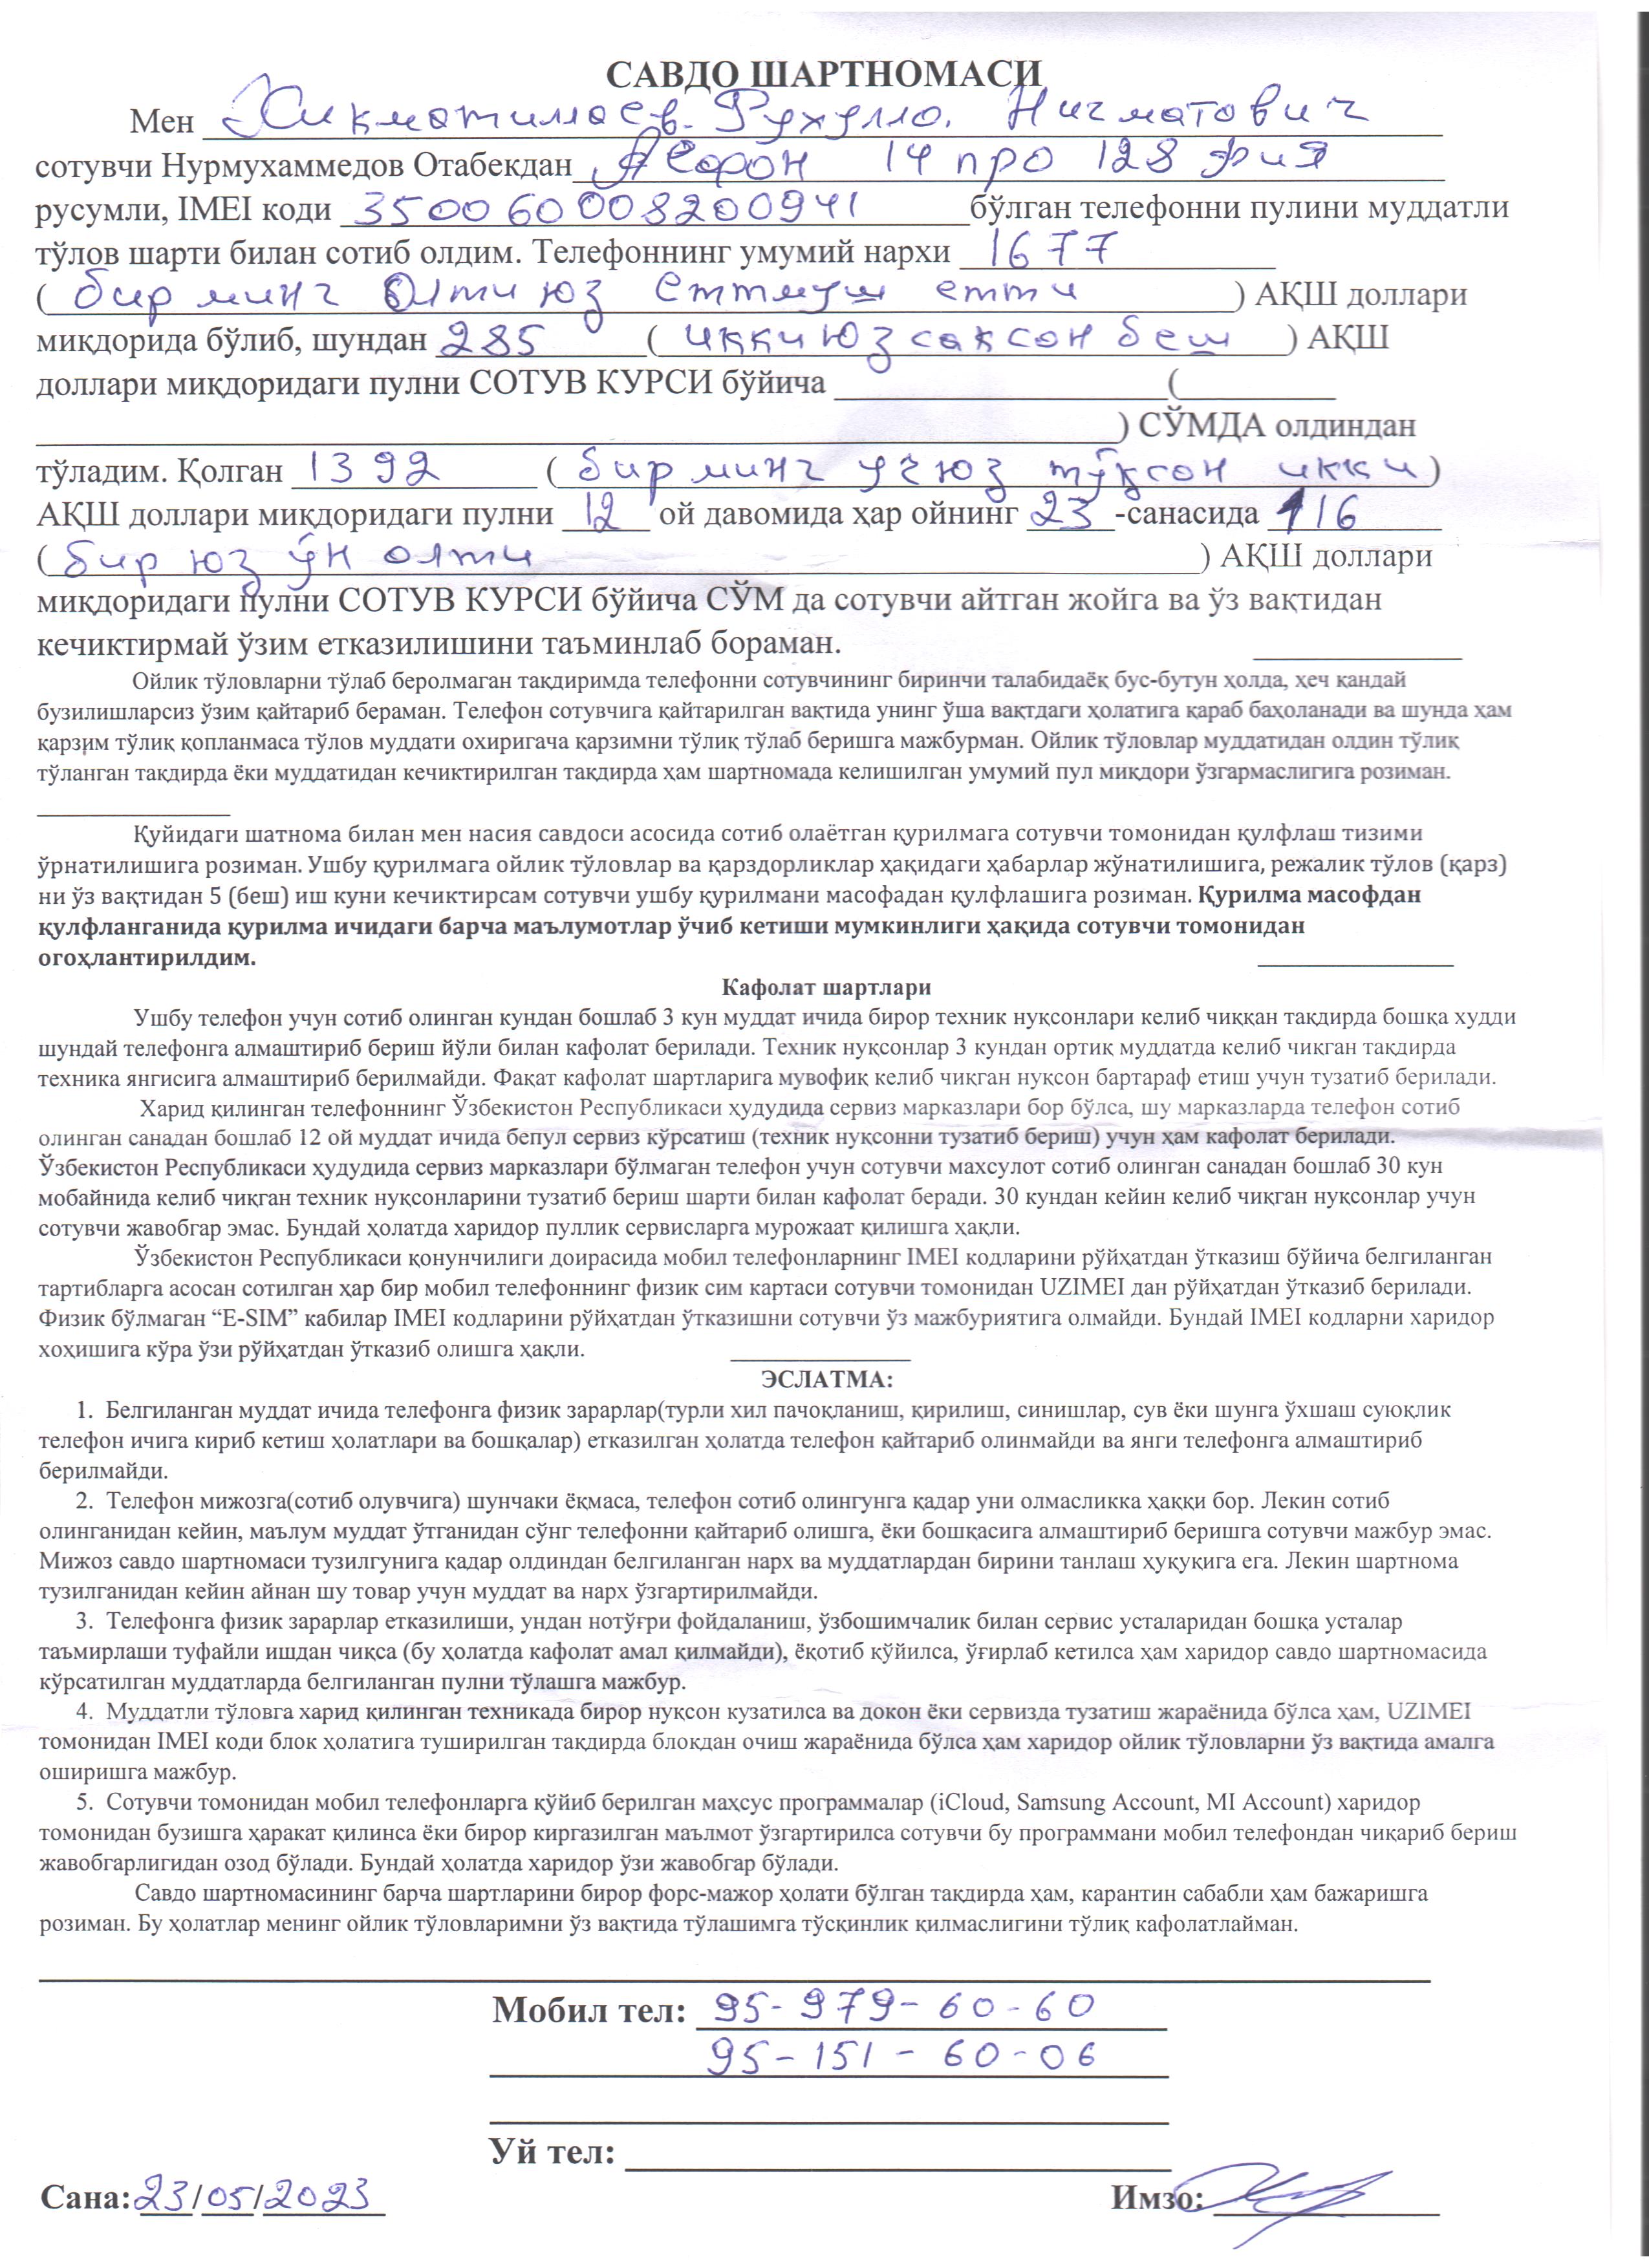 САВДО ШАРТНОМАСИ
Мен Хикматиллаев. Рухулло. Нигматович
сотувчи Нурмухаммедов Отабекдан Айфон 14 про 128
русумли, IMEI коди 350060008200941 бўлган телефонни пулини муддатли
тўлов шарти билан сотиб олдим. Телефоннинг умумий нархи 1677
( бир минг олти юз еттмуш етти ) АҚШ доллари
миқдорида бўлиб, шундан 285 ( икки юз саксон беш ) АҚШ
доллари миқдоридаги пулни СОТУВ КУРСИ бўйича (
) СЎМДА олдиндан
тўладим. Қолган 1392 ( бир минг уч юз тўқсон икки )
АҚШ доллари миқдоридаги пулни 12 ой давомида ҳар ойнинг 23-санасида 116
( бир юз ўн олти ) АҚШ доллари
миқдоридаги пулни СОТУВ КУРСИ бўйича СЎМ да сотувчи айтган жойга ва ўз вақтидан
кечиктирмай ўзим етказилишини таъминлаб бораман.
Ойлик тўловларни тўлаб беролмаган тақдиримда телефонни сотувчининг биринчи талабидаёқ бус-бутун ҳолда, ҳеч қандай
бузилишларсиз ўзим қайтариб бераман. Телефон сотувчига қайтарилган вақтида унинг ўша вақтдаги ҳолатига қараб баҳоланади ва шунда ҳам
қарзим тўлиқ қопланмаса тўлов муддати охиригача қарзимни тўлиқ тўлаб беришга мажбурман. Ойлик тўловлар муддатидан олдин тўлиқ
тўланган тақдирда ёки муддатидан кечиктирилган тақдирда ҳам шартномада келишилган умумий пул миқдори ўзгармаслигига розиман.
Қуйидаги шатнома билан мен насия савдоси асосида сотиб олаётган қурилмага сотувчи томонидан қулфлаш тизими
ўрнатилишига розиман. Ушбу қурилмага ойлик тўловлар ва қарздорликлар ҳақидаги ҳабарлар жўнатилишига, режалик тўлов (қарз)
ни ўз вақтидан 5 (беш) иш куни кечиктирсам сотувчи ушбу қурилмани масофадан қулфлашига розиман. Қурилма масофдан
қулфланганида қурилма ичидаги барча маълумотлар ўчиб кетиши мумкинлиги ҳақида сотувчи томонидан
огоҳлантирилдим.
Кафолат шартлари
Ушбу телефон учун сотиб олинган кундан бошлаб 3 кун муддат ичида бирор техник нуқсонлари келиб чиққан тақдирда бошқа худди
шундай телефонга алмаштириб бериш йўли билан кафолат берилади. Техник нуқсонлар 3 кундан ортиқ муддатда келиб чиқган тақдирда
техника янгисига алмаштириб берилмайди. Фақат кафолат шартларига мувофиқ келиб чиқган нуқсон бартараф етиш учун тузатиб берилади.
Харид қилинган телефоннинг Ўзбекистон Республикаси ҳудудида сервиз марказлари бор бўлса, шу марказларда телефон сотиб
олинган санадан бошлаб 12 ой муддат ичида бепул сервиз кўрсатиш (техник нуқсонни тузатиб бериш) учун ҳам кафолат берилади.
Ўзбекистон Республикаси ҳудудида сервиз марказлари бўлмаган телефон учун сотувчи махсулот сотиб олинган санадан бошлаб 30 кун
мобайнида келиб чиқган техник нуқсонларини тузатиб бериш шарти билан кафолат беради. 30 кундан кейин келиб чиқган нуқсонлар учун
сотувчи жавобгар эмас. Бундай ҳолатда харидор пуллик сервисларга мурожаат қилишга ҳақли.
Ўзбекистон Республикаси қонунчилиги доирасида мобил телефонларнинг IMEI кодларини рўйҳатдан ўтказиш бўйича белгиланган
тартибларга асосан сотилган ҳар бир мобил телефоннинг физик сим картаси сотувчи томонидан UZIMEI дан рўйҳатдан ўтказиб берилади.
Физик бўлмаган “E-SIM” кабилар IMEI кодларини рўйҳатдан ўтказишни сотувчи ўз мажбуриятига олмайди. Бундай IMEI кодларни харидор
хоҳишига кўра ўзи рўйҳатдан ўтказиб олишга ҳақли.
ЭСЛАТМА:
1. Белгиланган муддат ичида телефонга физик зарарлар(турли хил пачоқланиш, қирилиш, синишлар, сув ёки шунга ўхшаш суюқлик
телефон ичига кириб кетиш ҳолатлари ва бошқалар) етказилган ҳолатда телефон қайтариб олинмайди ва янги телефонга алмаштириб
берилмайди.
2. Телефон мижозга(сотиб олувчига) шунчаки ёқмаса, телефон сотиб олингунга қадар уни олмасликка ҳаққи бор. Лекин сотиб
олинганидан кейин, маълум муддат ўтганидан сўнг телефонни қайтариб олишга, ёки бошқасига алмаштириб беришга сотувчи мажбур эмас.
Мижоз савдо шартномаси тузилгунига қадар олдиндан белгиланган нарх ва муддатлардан бирини танлаш ҳуқуқига ега. Лекин шартнома
тузилганидан кейин айнан шу товар учун муддат ва нарх ўзгартирилмайди.
3. Телефонга физик зарарлар етказилиши, ундан нотўғри фойдаланиш, ўзбошимчалик билан сервис усталаридан бошқа усталар
таъмирлаши туфайли ишдан чиқса (бу ҳолатда кафолат амал қилмайди), ёқотиб қўйилса, ўғирлаб кетилса ҳам харидор савдо шартномасида
кўрсатилган муддатларда белгиланган пулни тўлашга мажбур.
4. Муддатли тўловга харид қилинган техникада бирор нуқсон кузатилса ва докон ёки сервизда тузатиш жараёнида бўлса ҳам, UZIMEI
томонидан IMEI коди блок ҳолатига туширилган тақдирда блокдан очиш жараёнида бўлса ҳам харидор ойлик тўловларни ўз вақтида амалга
оширишга мажбур.
5. Сотувчи томонидан мобил телефонларга қўйиб берилган маҳсус программалар (iCloud, Samsung Account, MI Account) харидор
томонидан бузишга ҳаракат қилинса ёки бирор киргазилган маълмот ўзгартирилса сотувчи бу программани мобил телефондан чиқариб бериш
жавобгарлигидан озод бўлади. Бундай ҳолатда харидор ўзи жавобгар бўлади.
Савдо шартномасининг барча шартларини бирор форс-мажор ҳолати бўлган тақдирда ҳам, карантин сабабли ҳам бажаришга
розиман. Бу ҳолатлар менинг ойлик тўловларимни ўз вақтида тўлашимга тўсқинлик қилмаслигини тўлиқ кафолатлайман.
Мобил тел: 95-979-60-60
95-151-60-06
Уй тел:
Сана: 23/05/2023 Имзо: